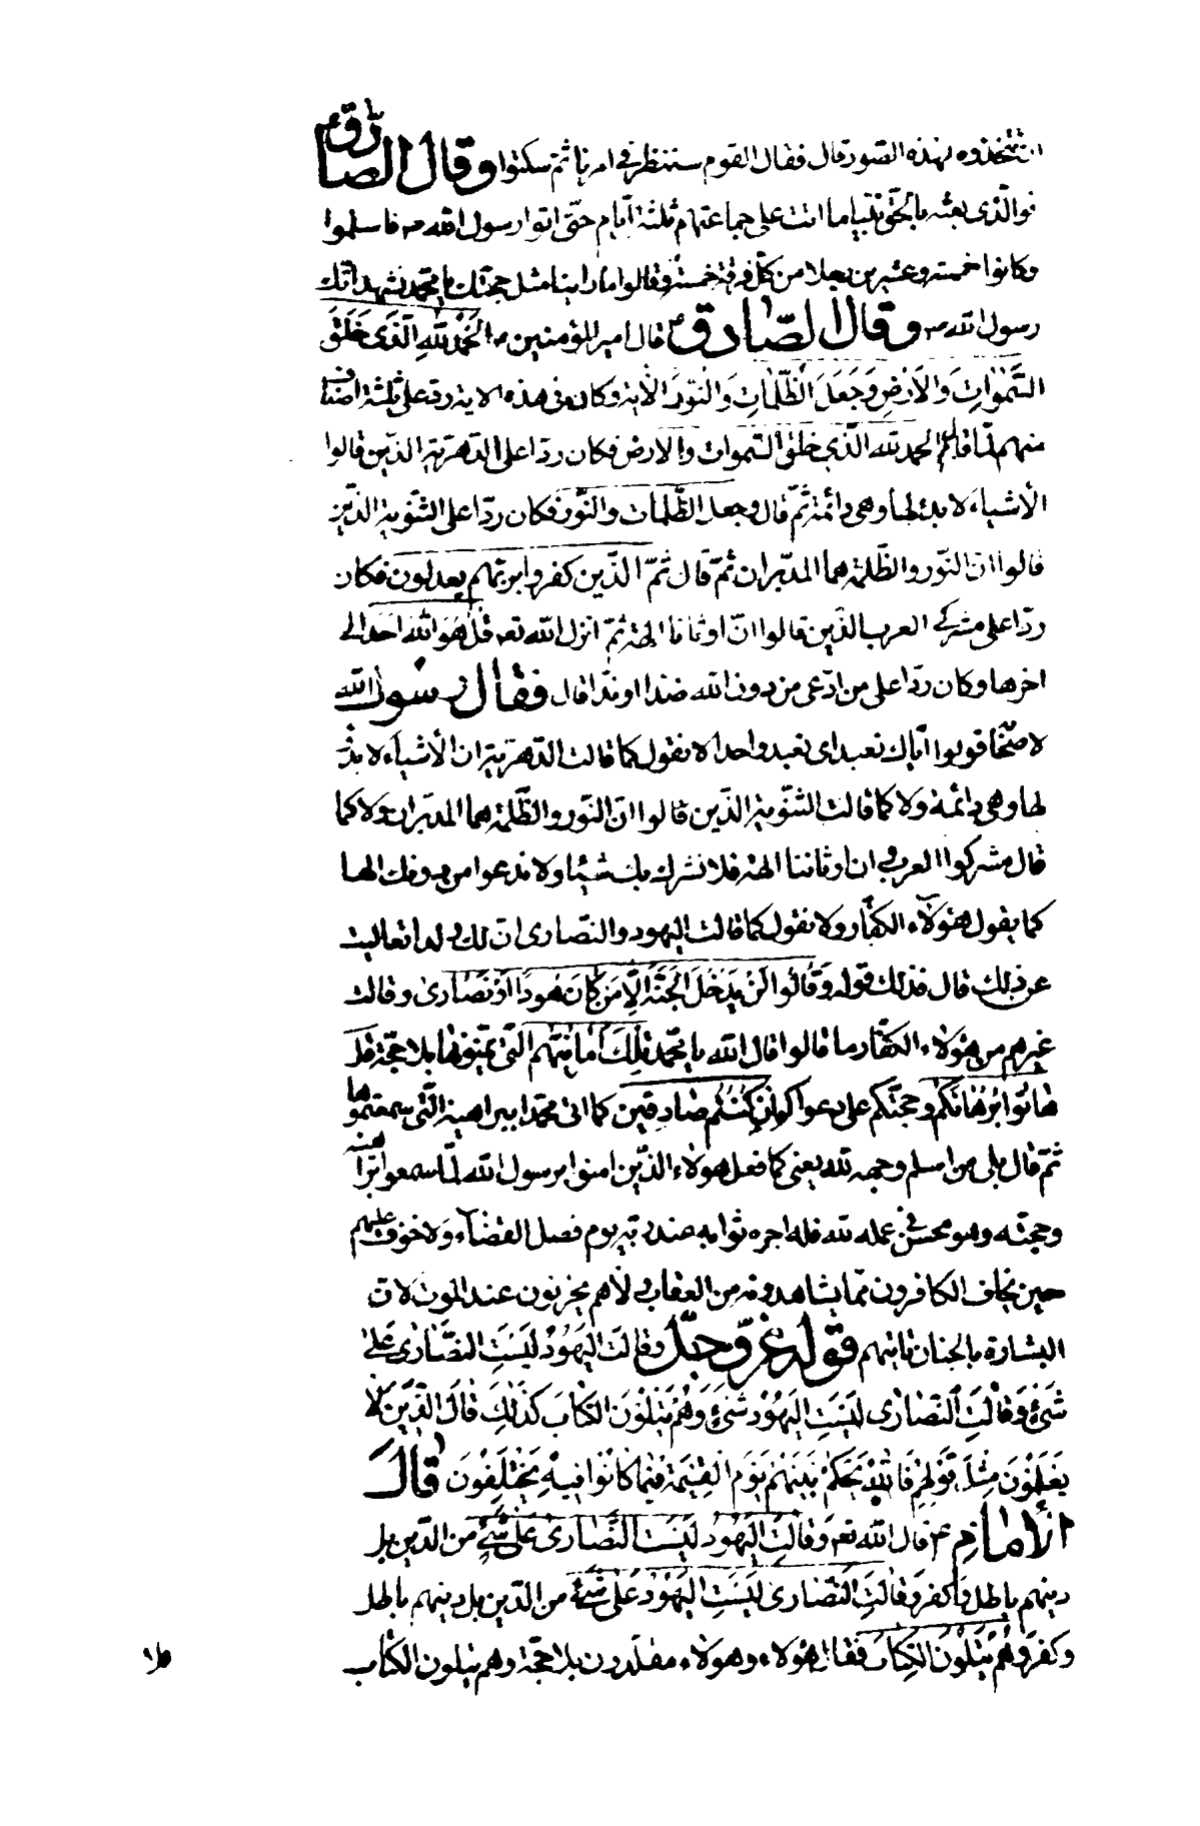 ان تتخذوه بهذه الصور قال فقال القوم سننظر في امرنا ثم سكتوا وقال الصادق
فوالذى بعثه بالحق نبيا ما اتت على جماعتهم ثلثة ايام حتى اتوا رسول الله ص فاسلموا
وكانوا خمسة وعشرين رجلا من كل فرقة خمسة وقالوا ما راينا مثل حجتك يا محمد نشهد انك
رسول الله ص وقال الصّادق ع قال امير المؤمنين ع الحَمْدُ للهِ الَّذى خَلَقَ
السَّمٰوٰاتِ وَالْاَرْضِ وَجَعَلَ الظُّلُمٰاتِ وَالنّورَ الاية وكان فى هذه الاية رد على ثلثة اصناف
منهم لمّا قال الحمد لله الّذى خلق السّموات والارض فكان ردّا على الدّهريّة الذين قالوا
الاشياء لا بدء لها وهى دائمة ثمّ قال وجعل الظّلمات والنّور فكان ردّا على الثّنويّة الذّين
قالوا ان النّور والظّلمة هما المدبّران ثمّ قال ثمّ الّذين كفروا بربّهم يعدلون فكان
ردّا على مشركى العرب الذّين قالوا انّ اوثاننا الهة ثمّ انزل الله تعه قُلْ هُوَ اللهُ اَحَد الى
اخرها وكان ردّا على من ادّعى من دون الله ضدا او ندّا قال فقال رسول الله
لاصحابه قولوا ايّاك نعبد اى نعبد واحدا لا نقول كما قالت الدّهريّة ان الاشياء لا بدء
لها وهى دائمة ولا كما قالت الثّنويّة الذّين قالوا انّ النّور والظّلمة هما المدبّران ولا كما
قال مشركوا العرب ان اوثاننا الهة فلا نشرك بك شيئا ولا ندعوا من دونك الها
كما يقول هؤلاء الكفّار ولا نقول كما قالت اليهود والنّصارى ان لك ولدا تعاليت
عن ذلك قال فذلك قوله وَقٰالُوا لَنْ يَدْخُلَ الْجَنَّةَ اِلّا مَنْ كٰانَ هُودًا اَوْ نَصٰارىٰ وقالت
غيرهم من هؤلاء الكفّار ما قالوا قال الله يا محمّد تِلْكَ اَمٰانِيُّهُمْ الّتى يتمنّونها بلا حجّة قل
هٰاتُوا بُرْهٰانَكُمْ وحجّتكم على دعواكم اِنْ كُنْتُمْ صٰادِقينَ كما اتى محمّد ببراهينه الّتى سمعتموها
ثمّ قال بلى من اسلم وجهه لله يعنى كما فعل هؤلاء الذّين امنوا برسول الله لمّا سمعوا براهينه
وحجّته وهو محسن فى عمله لله فله اجره ثوابه عند ربّه يوم فصل القضاء ولا خوف عليهم
حين يخاف الكافرون ممّا يشاهدونه من العقاب ولا هم يحزنون عند الموت لان
البشارة بالجنان تاتيهم قوله عزّ وجلّ وقالَتِ الْيَهُودُ لَيْسَتِ النَّصٰارىٰ عَلىٰ
شَىْءٍ وَقٰالَتِ النَّصٰارىٰ لَيْسَتِ الْيَهُودُ شَىْءٍ وَهُمْ يَتْلُونَ الكِتٰابَ كَذٰلِكَ قٰالَ الَّذينَ لٰا
يَعْلَمُونَ مِثْلَ قَوْلِهِمْ فَاللهُ يَحْكُمُ بَيْنَهُمْ يَوْمَ الْقِيٰمَةِ فيمٰا كٰانُوا فيهِ يَخْتَلِفُونَ قال
الامام ع قال الله تعه وَقٰالَتِ الْيَهُودُ لَيْسَتِ النَّصٰارىٰ عَلىٰ شَىْءٍ من الدّين بل
دينهم باطل وكفر وَقٰالَتِ النَّصٰارىٰ لَيْسَتِ الْيَهُودُ عَلىٰ شَىْءٍ من الدّين بل دينهم باطل
وكفر وَهُمْ يَتْلُونَ الكِتٰابَ فقال هؤلاء وهؤلاء مقلّدون بلا حجّة وهم يتلون الكتاب